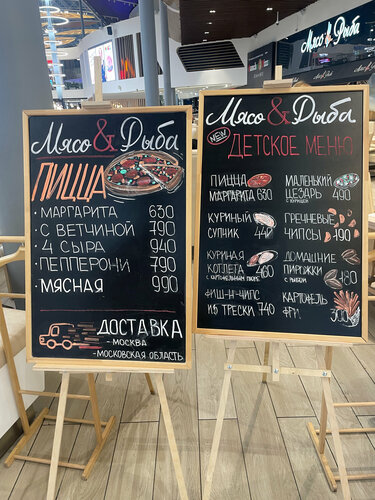 Мясо & Рыба
Мясо & Рыба
ПИЦЦА
· МАРГАРИТА 630
· С ВЕТЧИНОЙ 790
· 4 СЫРА 940
· ПЕППЕРОНИ 790
· МЯСНАЯ 990
ДОСТАВКА
- МОСКВА
- МОСКОВСКАЯ ОБЛАСТЬ
Мясо & Рыба
NEW
ДЕТСКОЕ МЕНЮ
ПИЦЦА
МАРГАРИТА 630
КУРИНЫЙ
СУПЧИК 440
КУРИНАЯ
КОТЛЕТА
С КАРТОФЕЛЬНЫМ ПЮРЕ 460
ФИШ-Н-ЧИПС
ИЗ ТРЕСКИ 740
МАЛЕНЬКИЙ
ЦЕЗАРЬ 490
С КУРИЦЕЙ
ГРЕЧНЕВЫЕ
ЧИПСЫ 190
ДОМАШНИЕ
ПИРОЖКИ 180
С РЫБОЙ
КАРТОФЕЛЬ
ФРИ 300